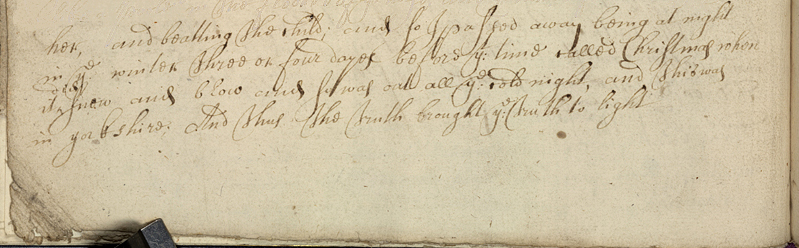 her, and beatting the child: and so I passed away being at night
in ye winter three or four dayes before ye time called Christmas when
it snew and blow and I was out all ye cold night, and this was
in yorkshire: And thus the truth brought ye truth to light